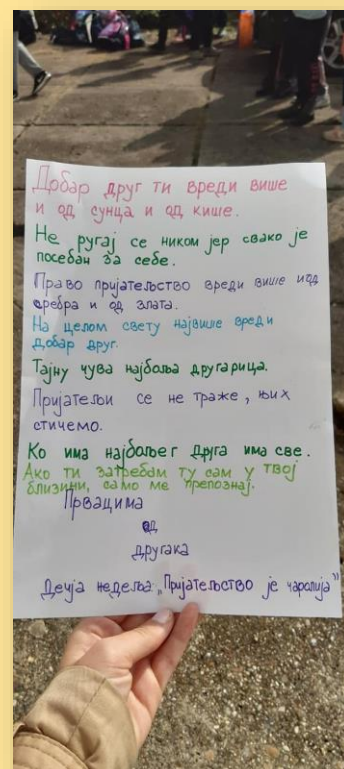 Добар друг ти вреди више
и од сунца и од кише.
Не ругај се ником јер свако је
посебан за себе.
Право пријатељство вреди више иод
сребра и од злата.
На целом свету највише вреди
добар друг.
Тајну чува најбоља другарица.
Пријатељи се не траже, њих
стичемо.
Ко има најбољег друга има све.
Ако ти затребам ту сам у твој
близини, само ме препознај.
Првацима
од
другака
Дечја недеља „Пријатељство је чаролија"